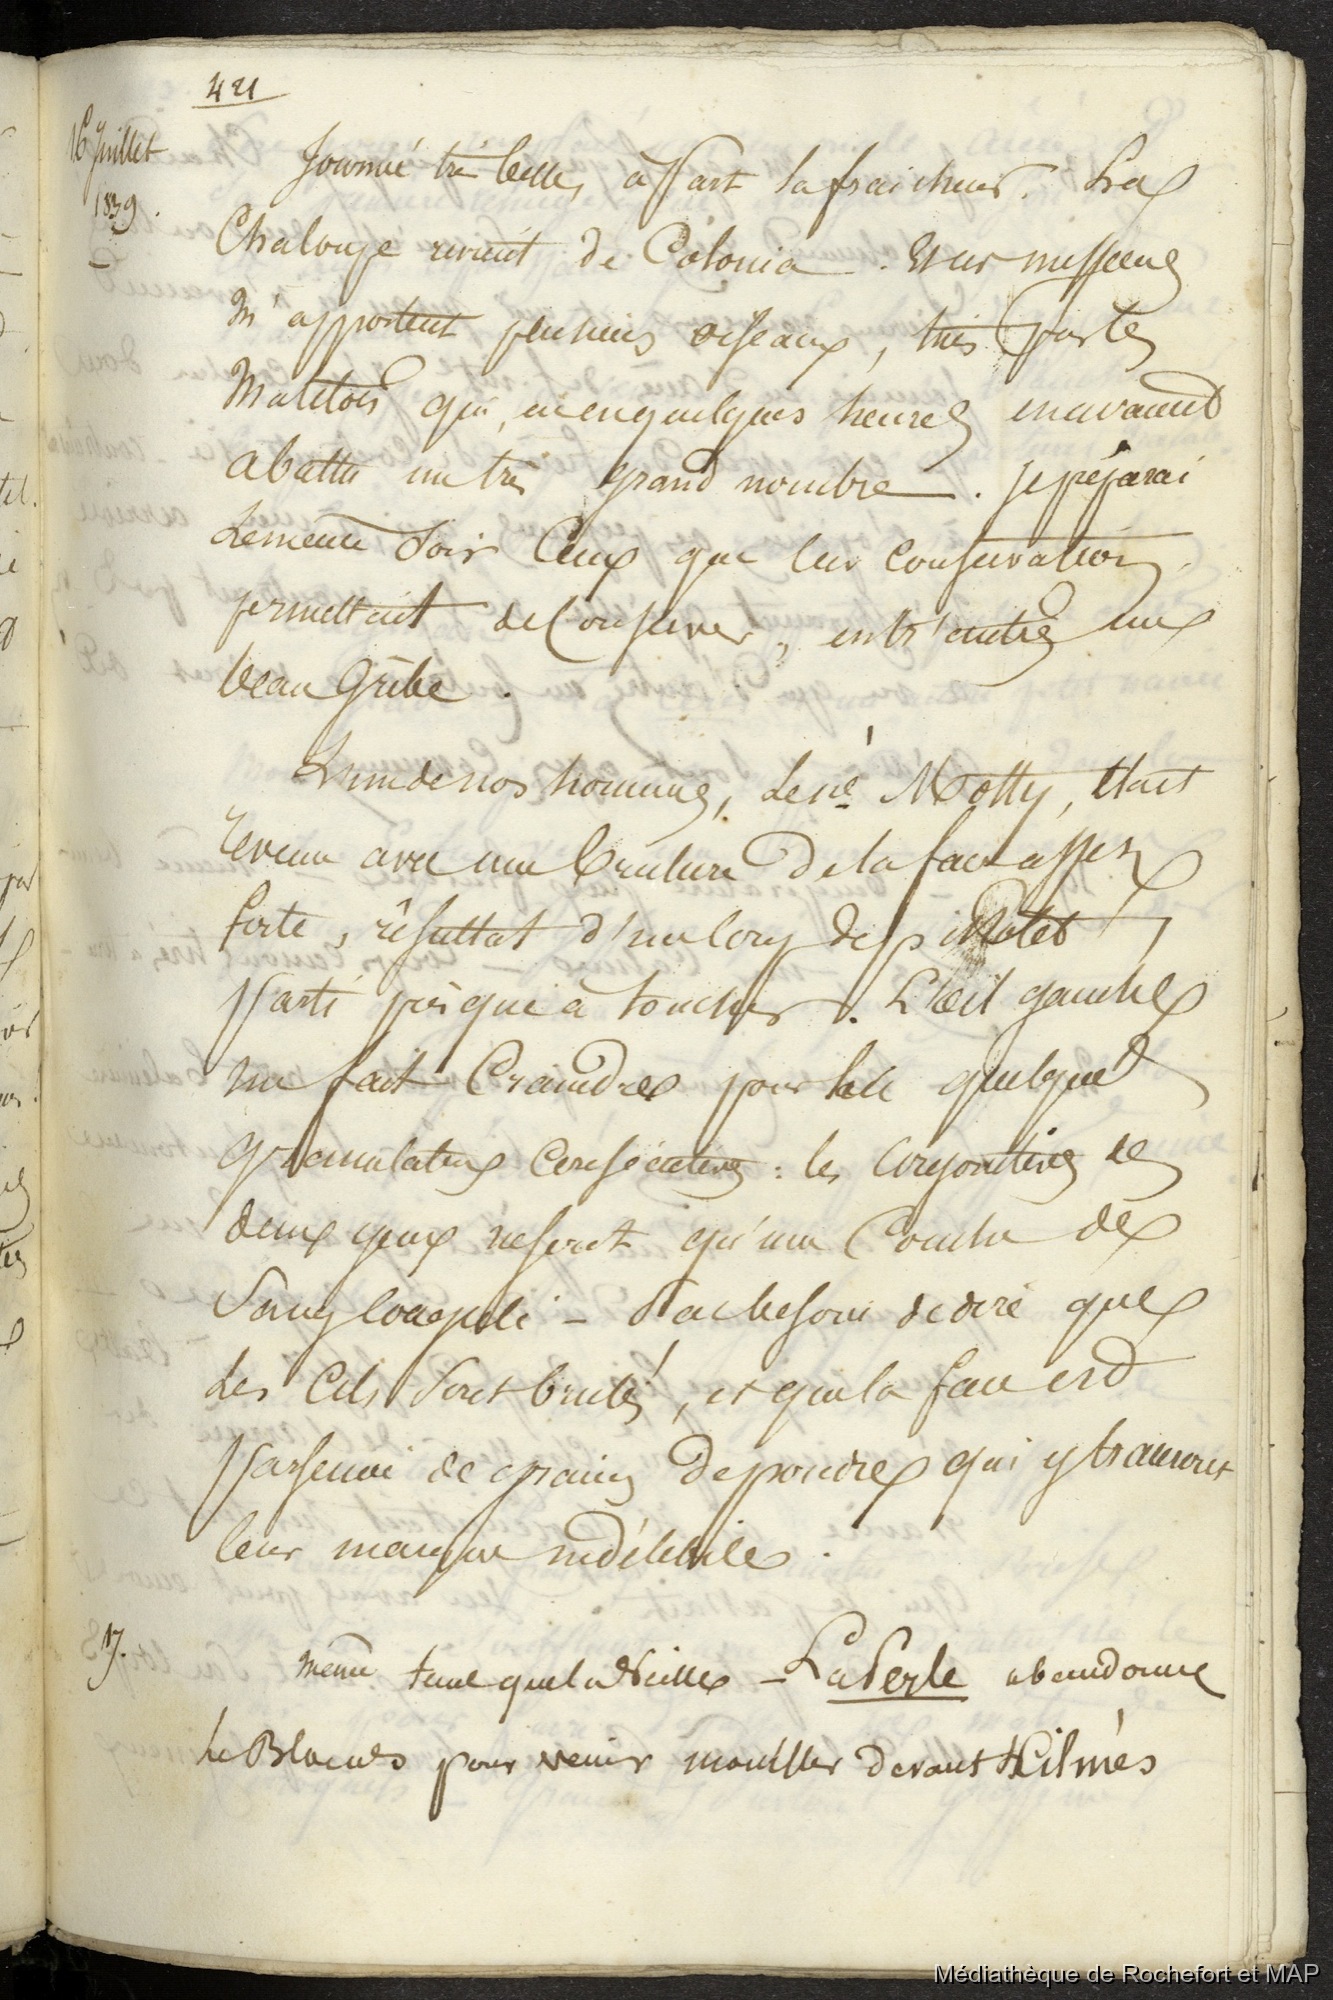 421
16 Juillet
1839.
Journée très belle, à part la fraicheur. La
Chaloupe revient de Colonia. Et ces messieurs
m'apportent plusieurs oiseaux, tués par les
matelots qui, en quelques heures en avaient
abattu un très grand nombre. Je préparai
le même soir ceux que leur conservation
permettait de conserver, entr'autres un
beau Grèbe.
L'un de nos hommes, le né Motty, était
revenu avec une brulure de la face assez
forte, résultat d'un coup de pistolet
parti presque à toucher. L'œil gauche
me fait craindre pour lui quelques
consécutives : les conjonctives des
deux yeux ne font qu'une couche de
sang coagulé - Pas besoin de dire que
les cils sont brulés, et que la face est
parsemée de grains de poudre qui y traceront
leur marque indélébile.
17.
même tems que la veille - La Perle abandonne
le Blocus pour venir mouiller devant Kilmès
Médiathèque de Rochefort et MAP